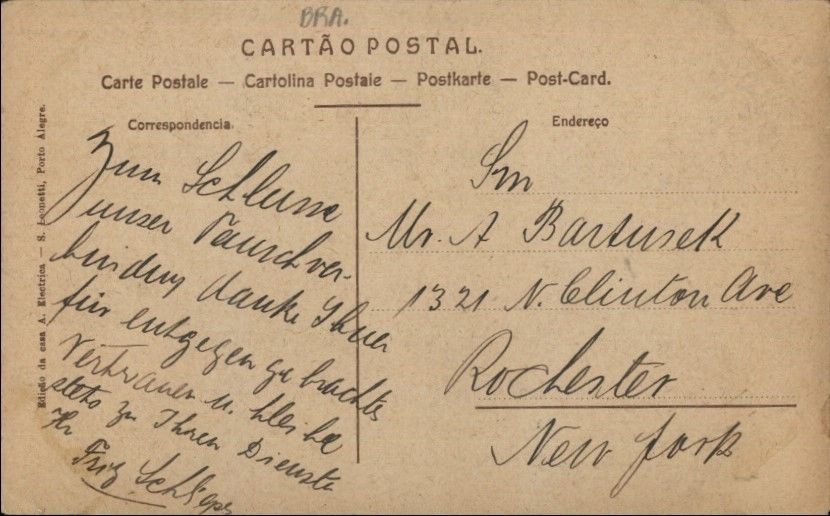 BRA.
CARTÃO POSTAL.
Carte Postale — Cartolina Postale — Postkarte — Post-Card.
Correspondencia.
Endereço
Edição da casa A. Electrica — S. Leonetti, Porto Alegre.
Zum Schlusse
unser Tauschver-
bindung danke Ihnen
für entgegen gebrachtes
Vertrauen u. bleibe
stets zu Ihren Dienste
Ihr
Fritz
Snr
Mr. A Bartusek
1321 N. Clinton Ave
Rochester
New York